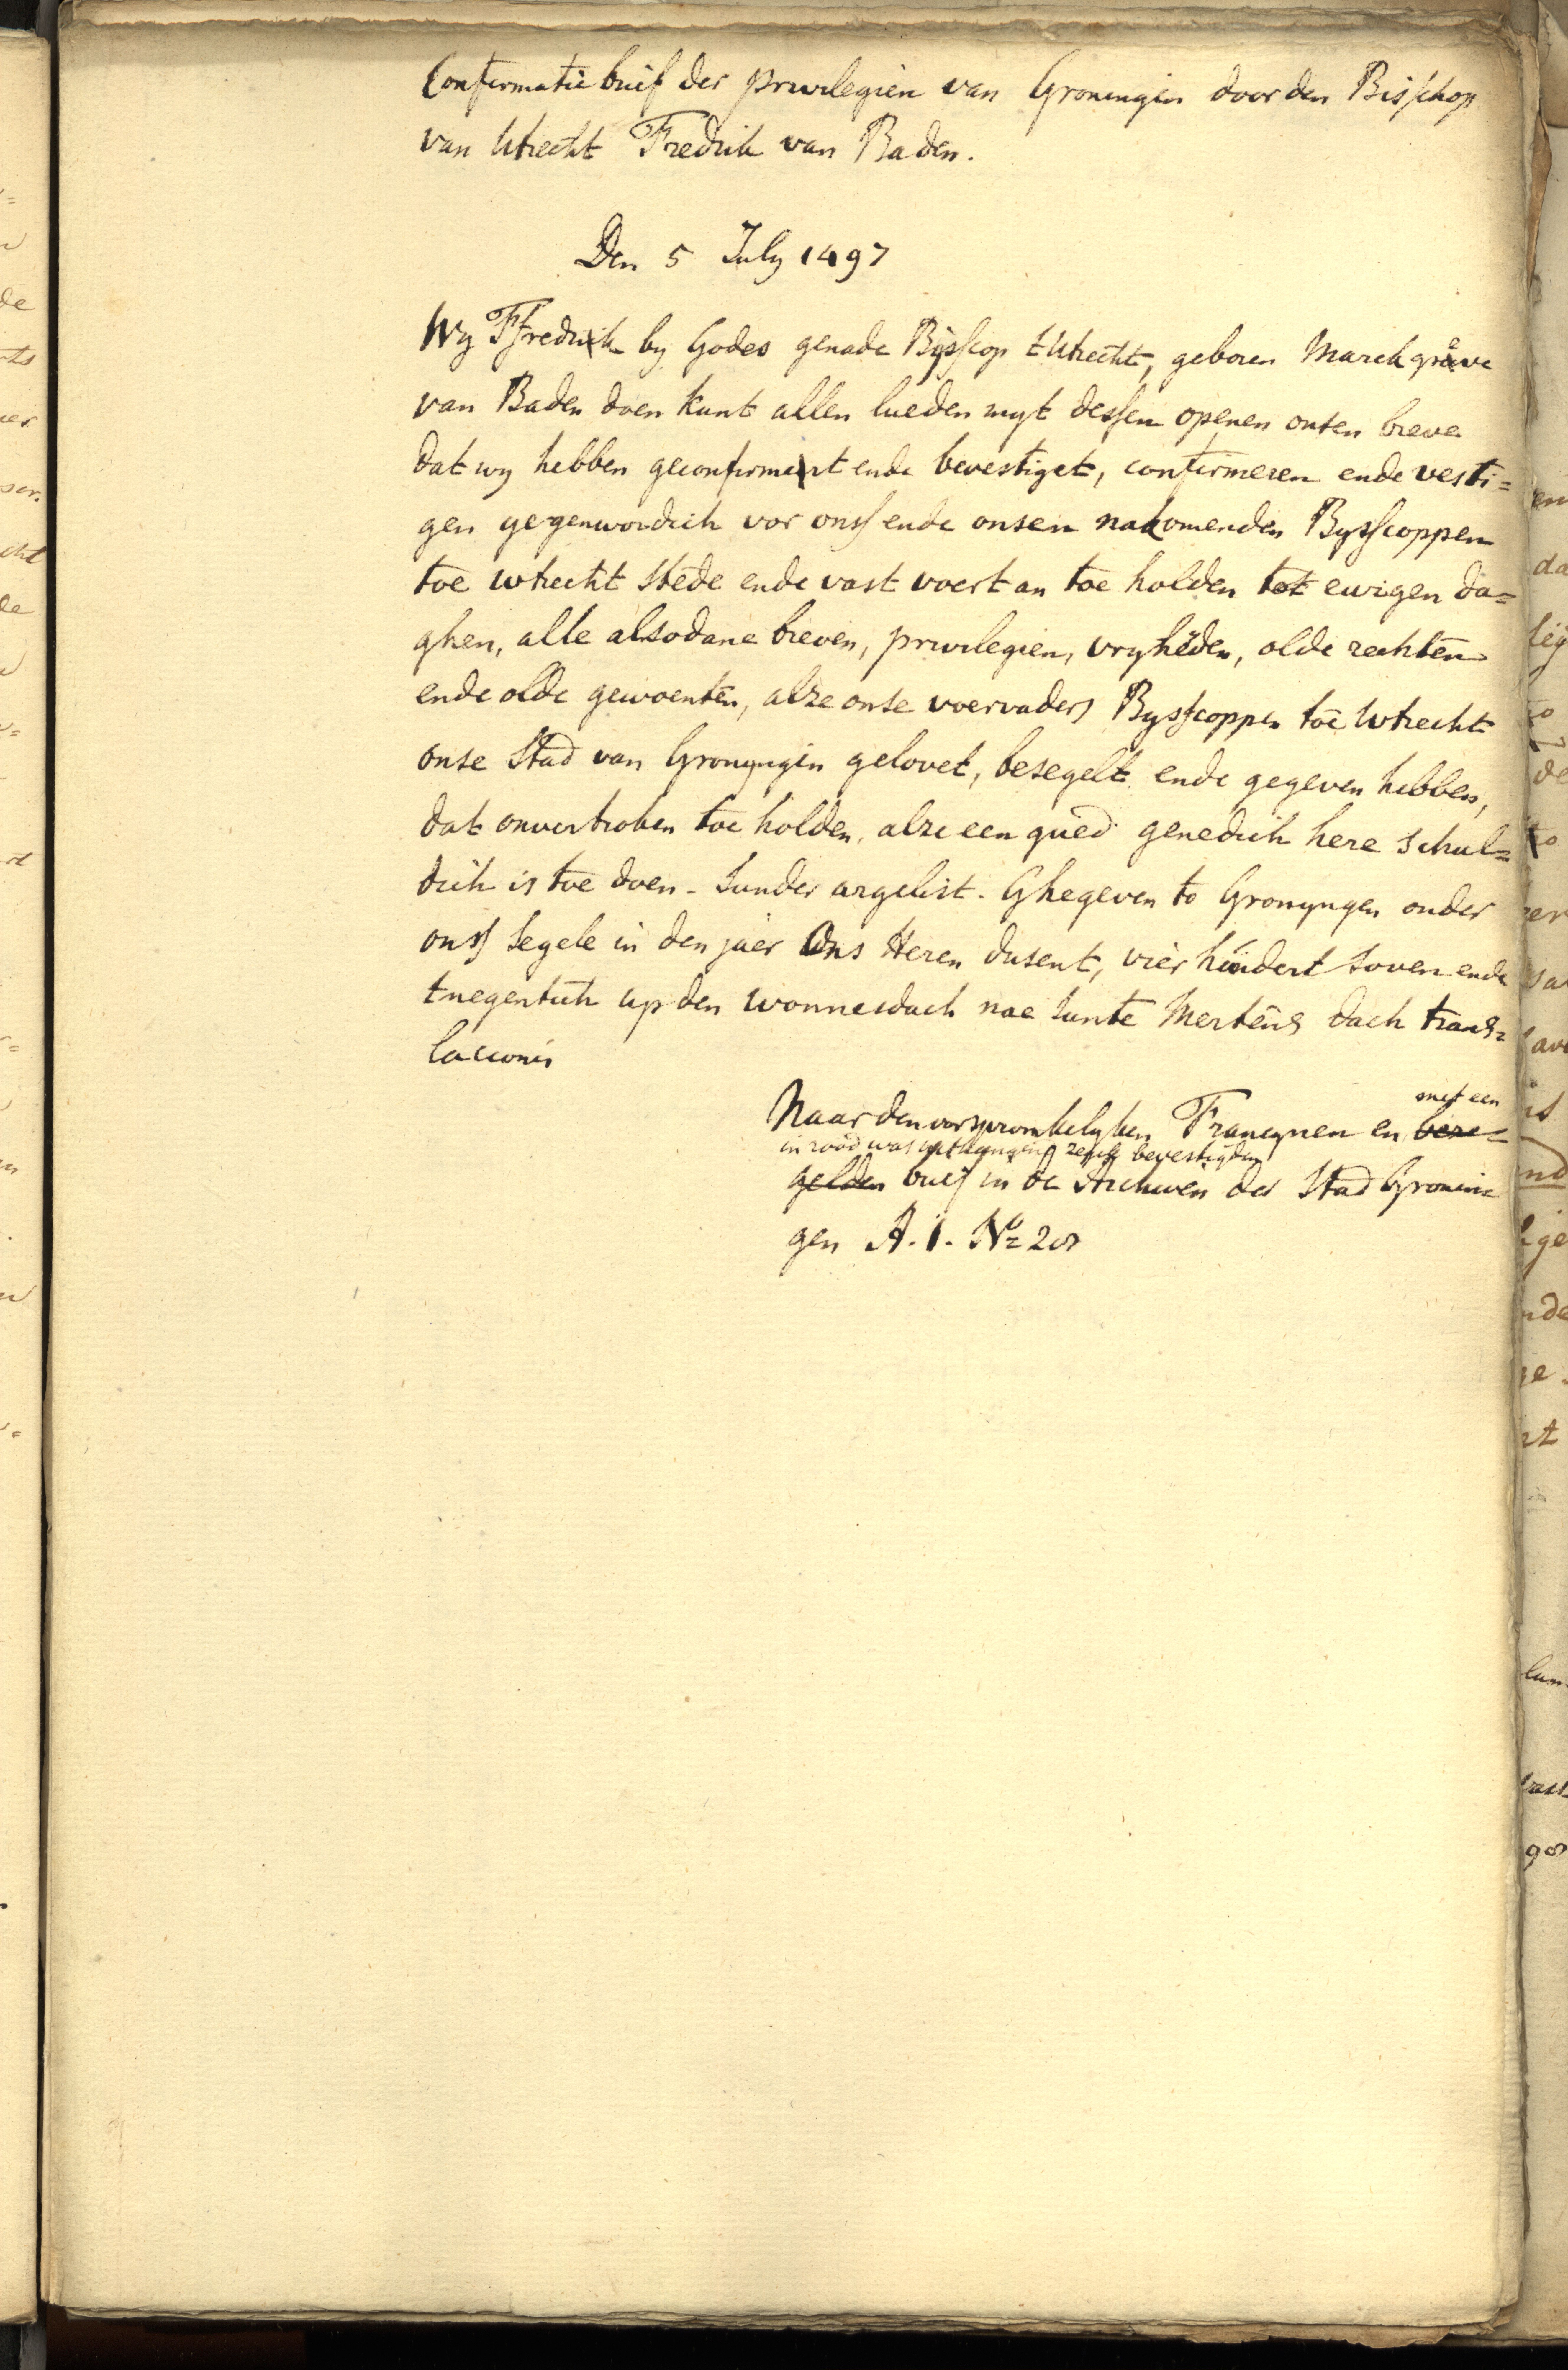 Confirmatie brief der privilegien van Groningen door den Bisschop
van Utrecht Fredrik van Baden.
Den 5 July 1497
Wy Ffredrik by Godes genade Bysscop tUtrecht, geboren Marckgrave
van Baden doen kunt allen lueden myt dessen openen onsen breve
dat wy hebben geconfirmert ende bevestiget, confirmeren ende vesti=
gen gegenwordich vor onss ende onsen nakomenden Bysscoppen
toe Utrecht stede ende vast voert an toe holden tot ewigen da=
ghen, alle alsodane breven, privilegien, vryheden, olde rechten
ende olde gewoenten, alze onse voervaders Bysscoppen toe Utrecht
onse Stad van Gronyngen gelovet, besegelt ende gegeven hebben,
dat onvertroken toe holden, alze een gued genedich here schul=
dich is toe doen. Sunder argelist. Ghegeven to Gronyngen onder
onss Segele in den jaer Ons Heren dusent, vier hundert soven ende
tnegentich up den wonnesdach nae Sunte Mertens dach trans=
lacionis
Naar den oorspronkelyken Francynen en met een
in rood was uithangend zegel bevestigden
brief in de Archiven der Stad Gronin=
gen A. 1. No 20